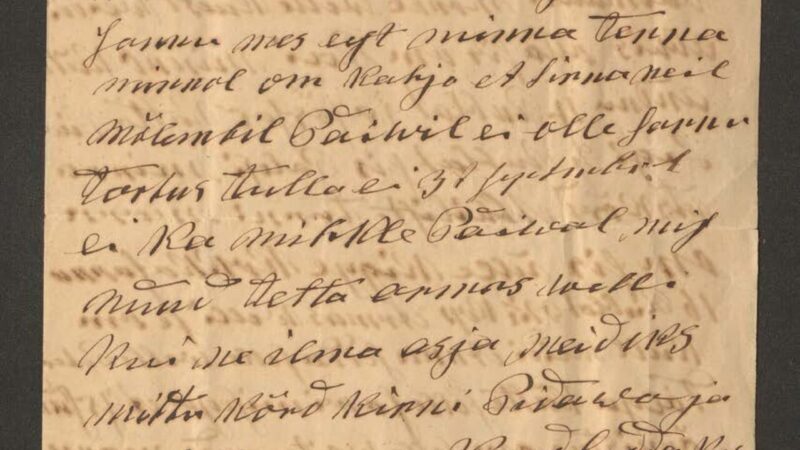 sannu mes eyt minna tenna
minnol om Kahjo et sinna neil
mõlembil Päiwil ei olle sannu
tortus tulla ei 3t septembril
ei Ka mihkle Päiwal, mis
nüüd tetta armas welli
Kui ne ilma asja, meid iks
mittu Kõrd Kinni Pidawa ja